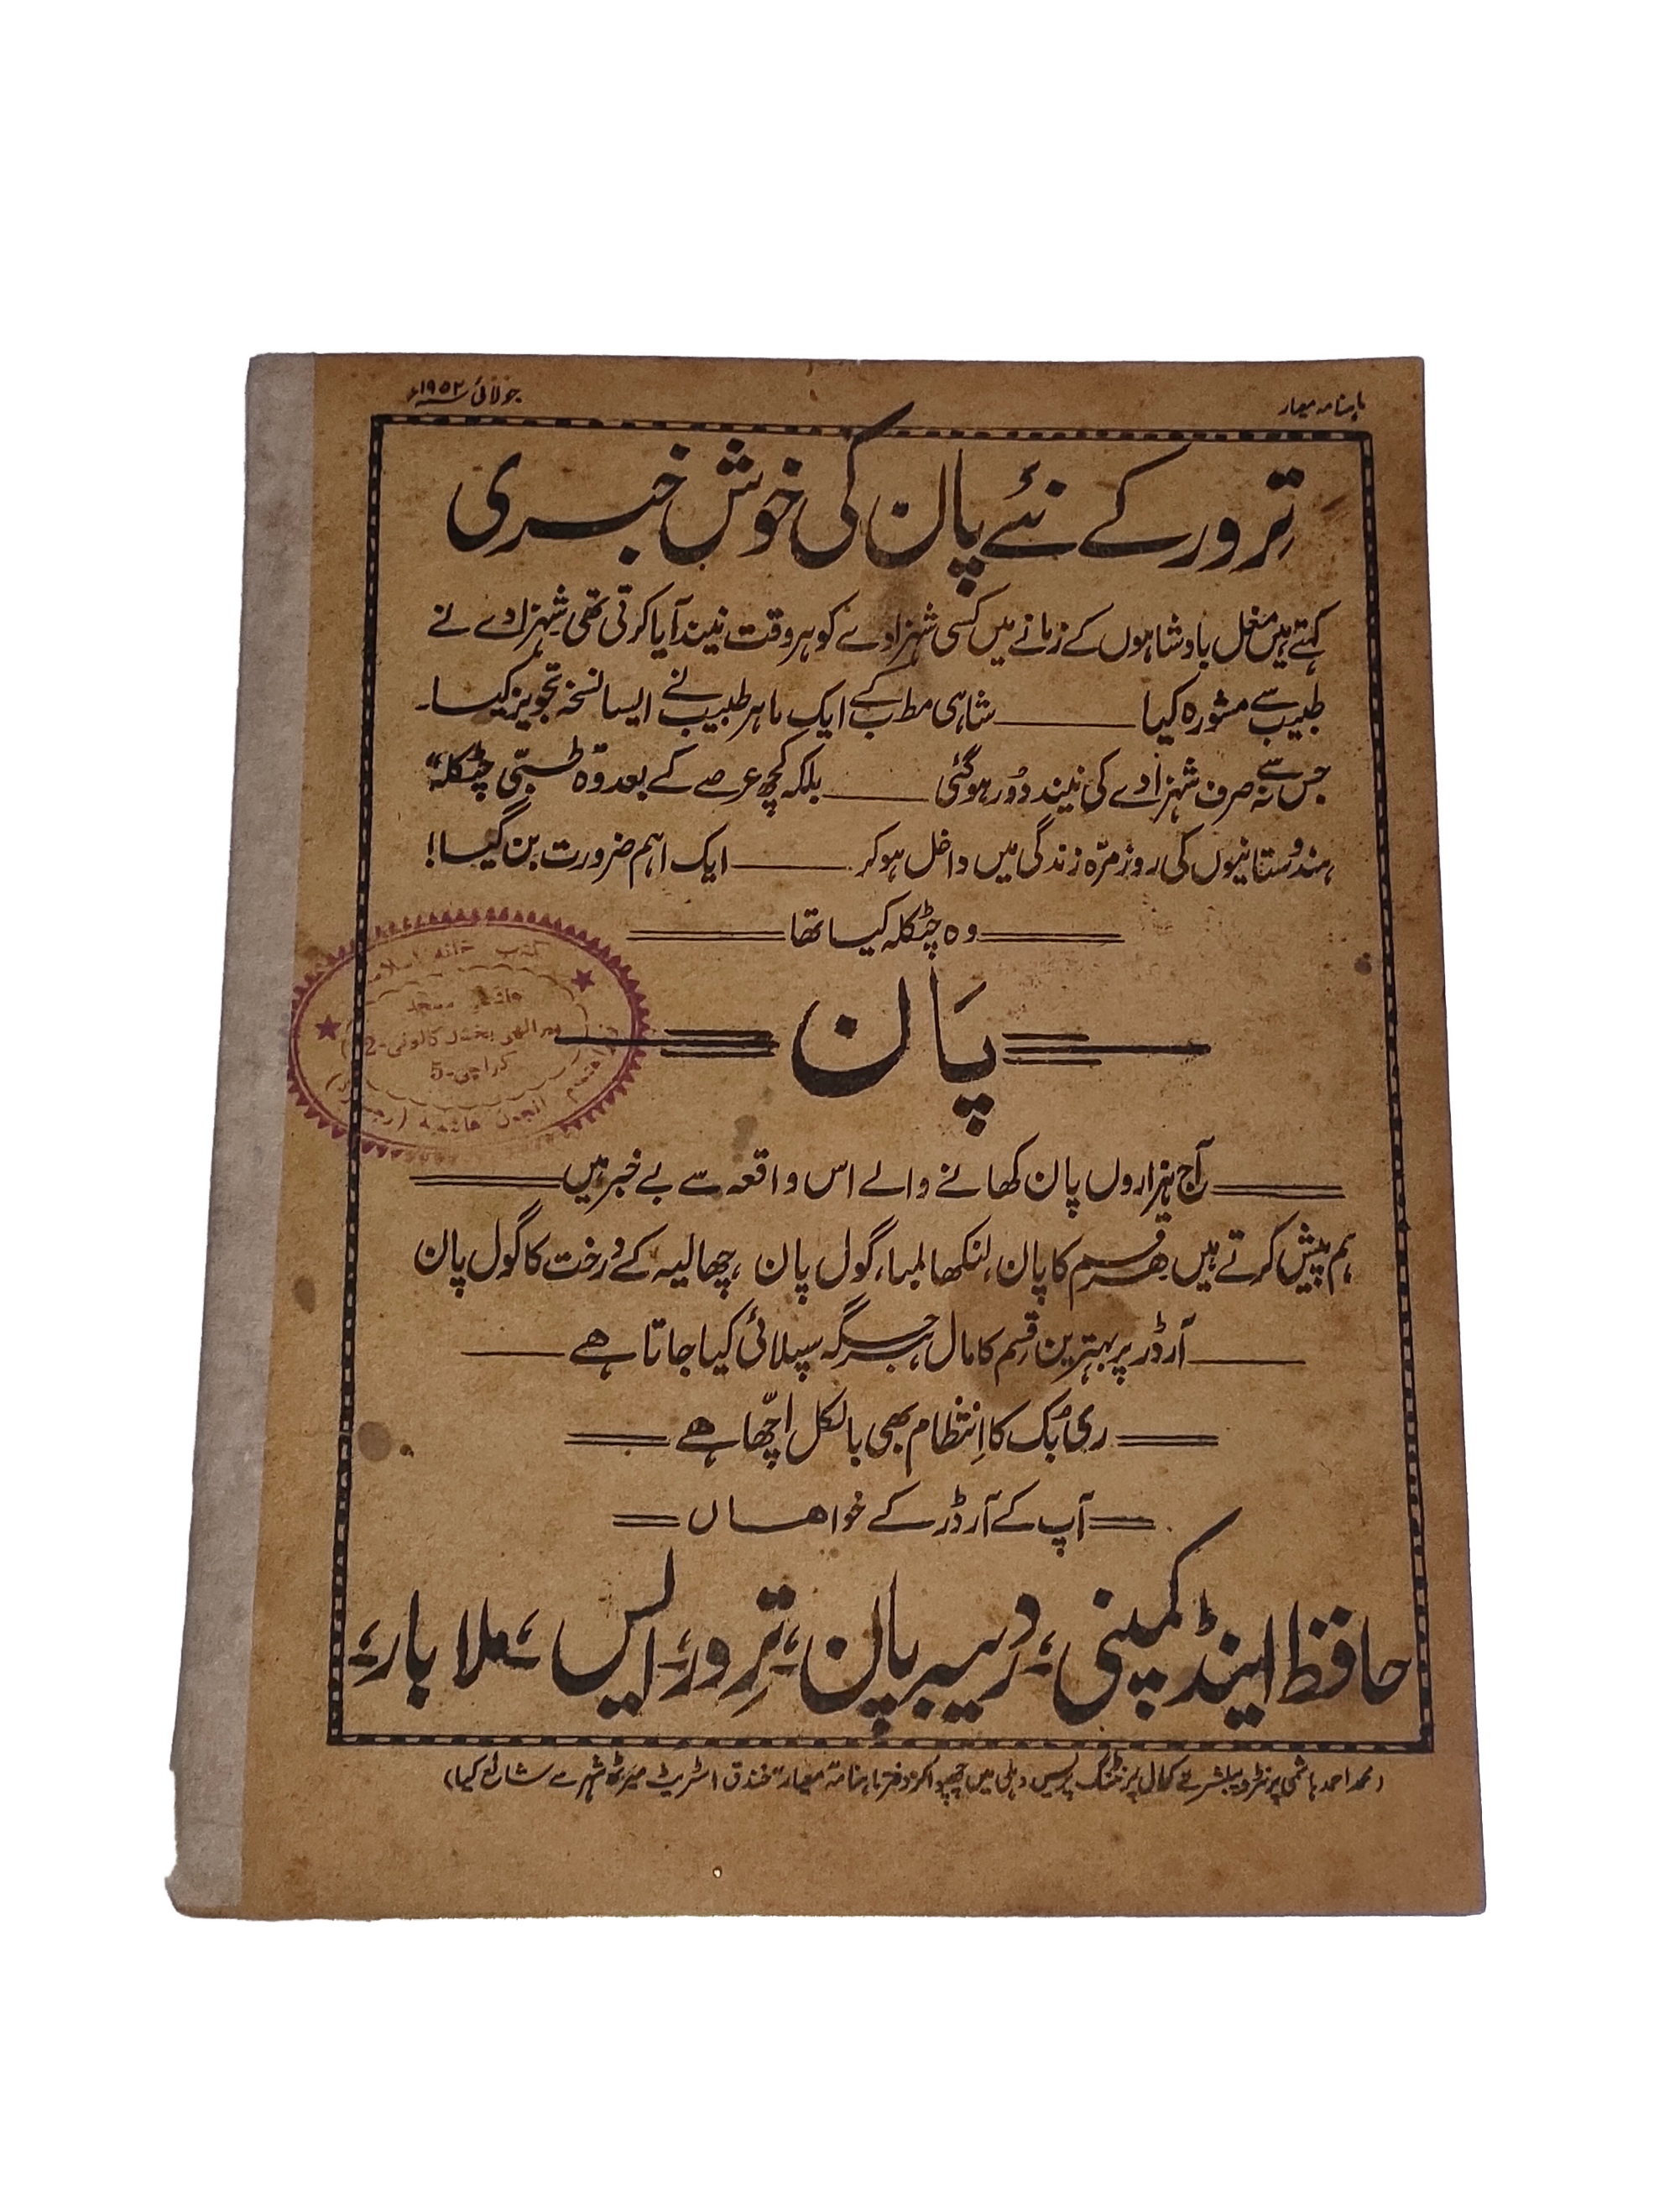 ماہنامہ معیار
جولائی ۱۹۵۲ء
تِرور کے نئے پان کی خوش خبری
کہتے ہیں مغل بادشاہوں کے زمانے میں کسی شہزادے کو ہر وقت نیند آیا کرتی تھی شہزادے نے
طبیب سے مشورہ کیا ــــــــ شاہی مطب کے ایک ماہر طبیب نے ایسا نسخہ تجویز کیا۔
جس سے نہ صرف شہزادے کی نیند دُور ہوگئی ــــــــ بلکہ کچھ عرصے کے بعد وہ طبّی چٹکلہ"
ہندوستانیوں کی روزمرّہ زندگی میں داخل ہوکر ــــــــ ایک اہم ضرورت بن گیا!
وہ چٹکلہ کیا تھا
پَان
آج ہزاروں پان کھانے والے اس واقعہ سے بے خبر ہیں
ہم پیش کرتے ہیں ہر قسم کا پان، لنکھا لمبا، گول پان، چھالیہ کے درخت کا گول پان
آرڈر پر بہترین قِسم کا مال ہر جگہ سپلائی کیا جاتا ہے
ری بُک کا اِنتظام بھی بالکل اچّھا ہے
آپ کے آرڈر کے خواہاں
حافظ اینڈ کمپنی، دریبہ پان، تِرور، ایس، ملابار،
(محمد احمد ہاشمی پرنٹر و پبلشر نے کمال پرنٹنگ پریس دہلی میں چھپوا کر دفتر ماہنامہ معیار" خندق اسٹریٹ میرٹھ شہر سے شائع کیا)
کتب خانہ اسلامی
ہاشمی مسجد
پیر الہی بخش کالونی-2
کراچی-5
انجمن ہاشمیہ